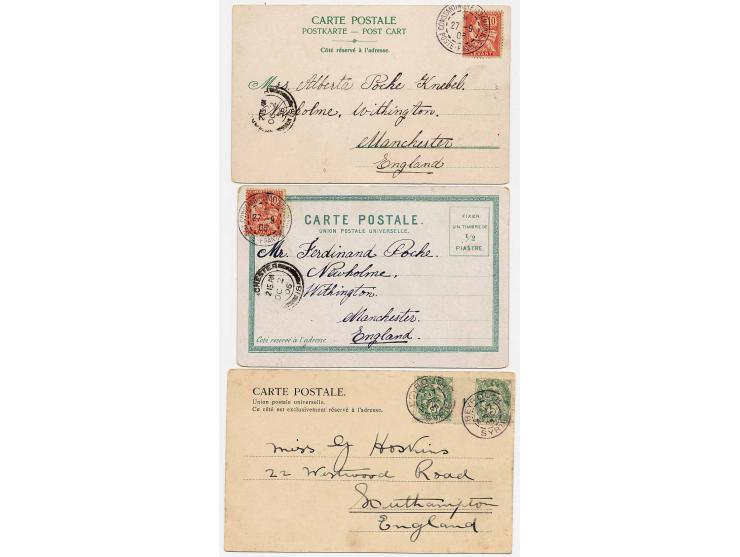 CARTE POSTALE
POSTKARTE — POST CART
Côté réservé à l'adresse.
10
LEVANT
27 -9
05
Mrs Alberta Poche Knebel.
Newholme, Withington.
Manchester
England
2 15 PM
OC 2
10
27 -9
05
CARTE POSTALE.
UNION POSTALE UNIVERSELLE.
FIXER
UN TIMBRE DE
1/2
PIASTRE.
Mr. Ferdinand Poche.
Newholme.
Withington.
Manchester.
England.
CHESTER
2 15 PM
OC 2
05
Côté réservé à l'adresse
CARTE POSTALE.
Union postale universelle.
Ce côté est exclusivement réservé à l'adresse.
BEYROUTH
SYRIE
Miss G Hoskins
22 Westwood Road
Southampton
England